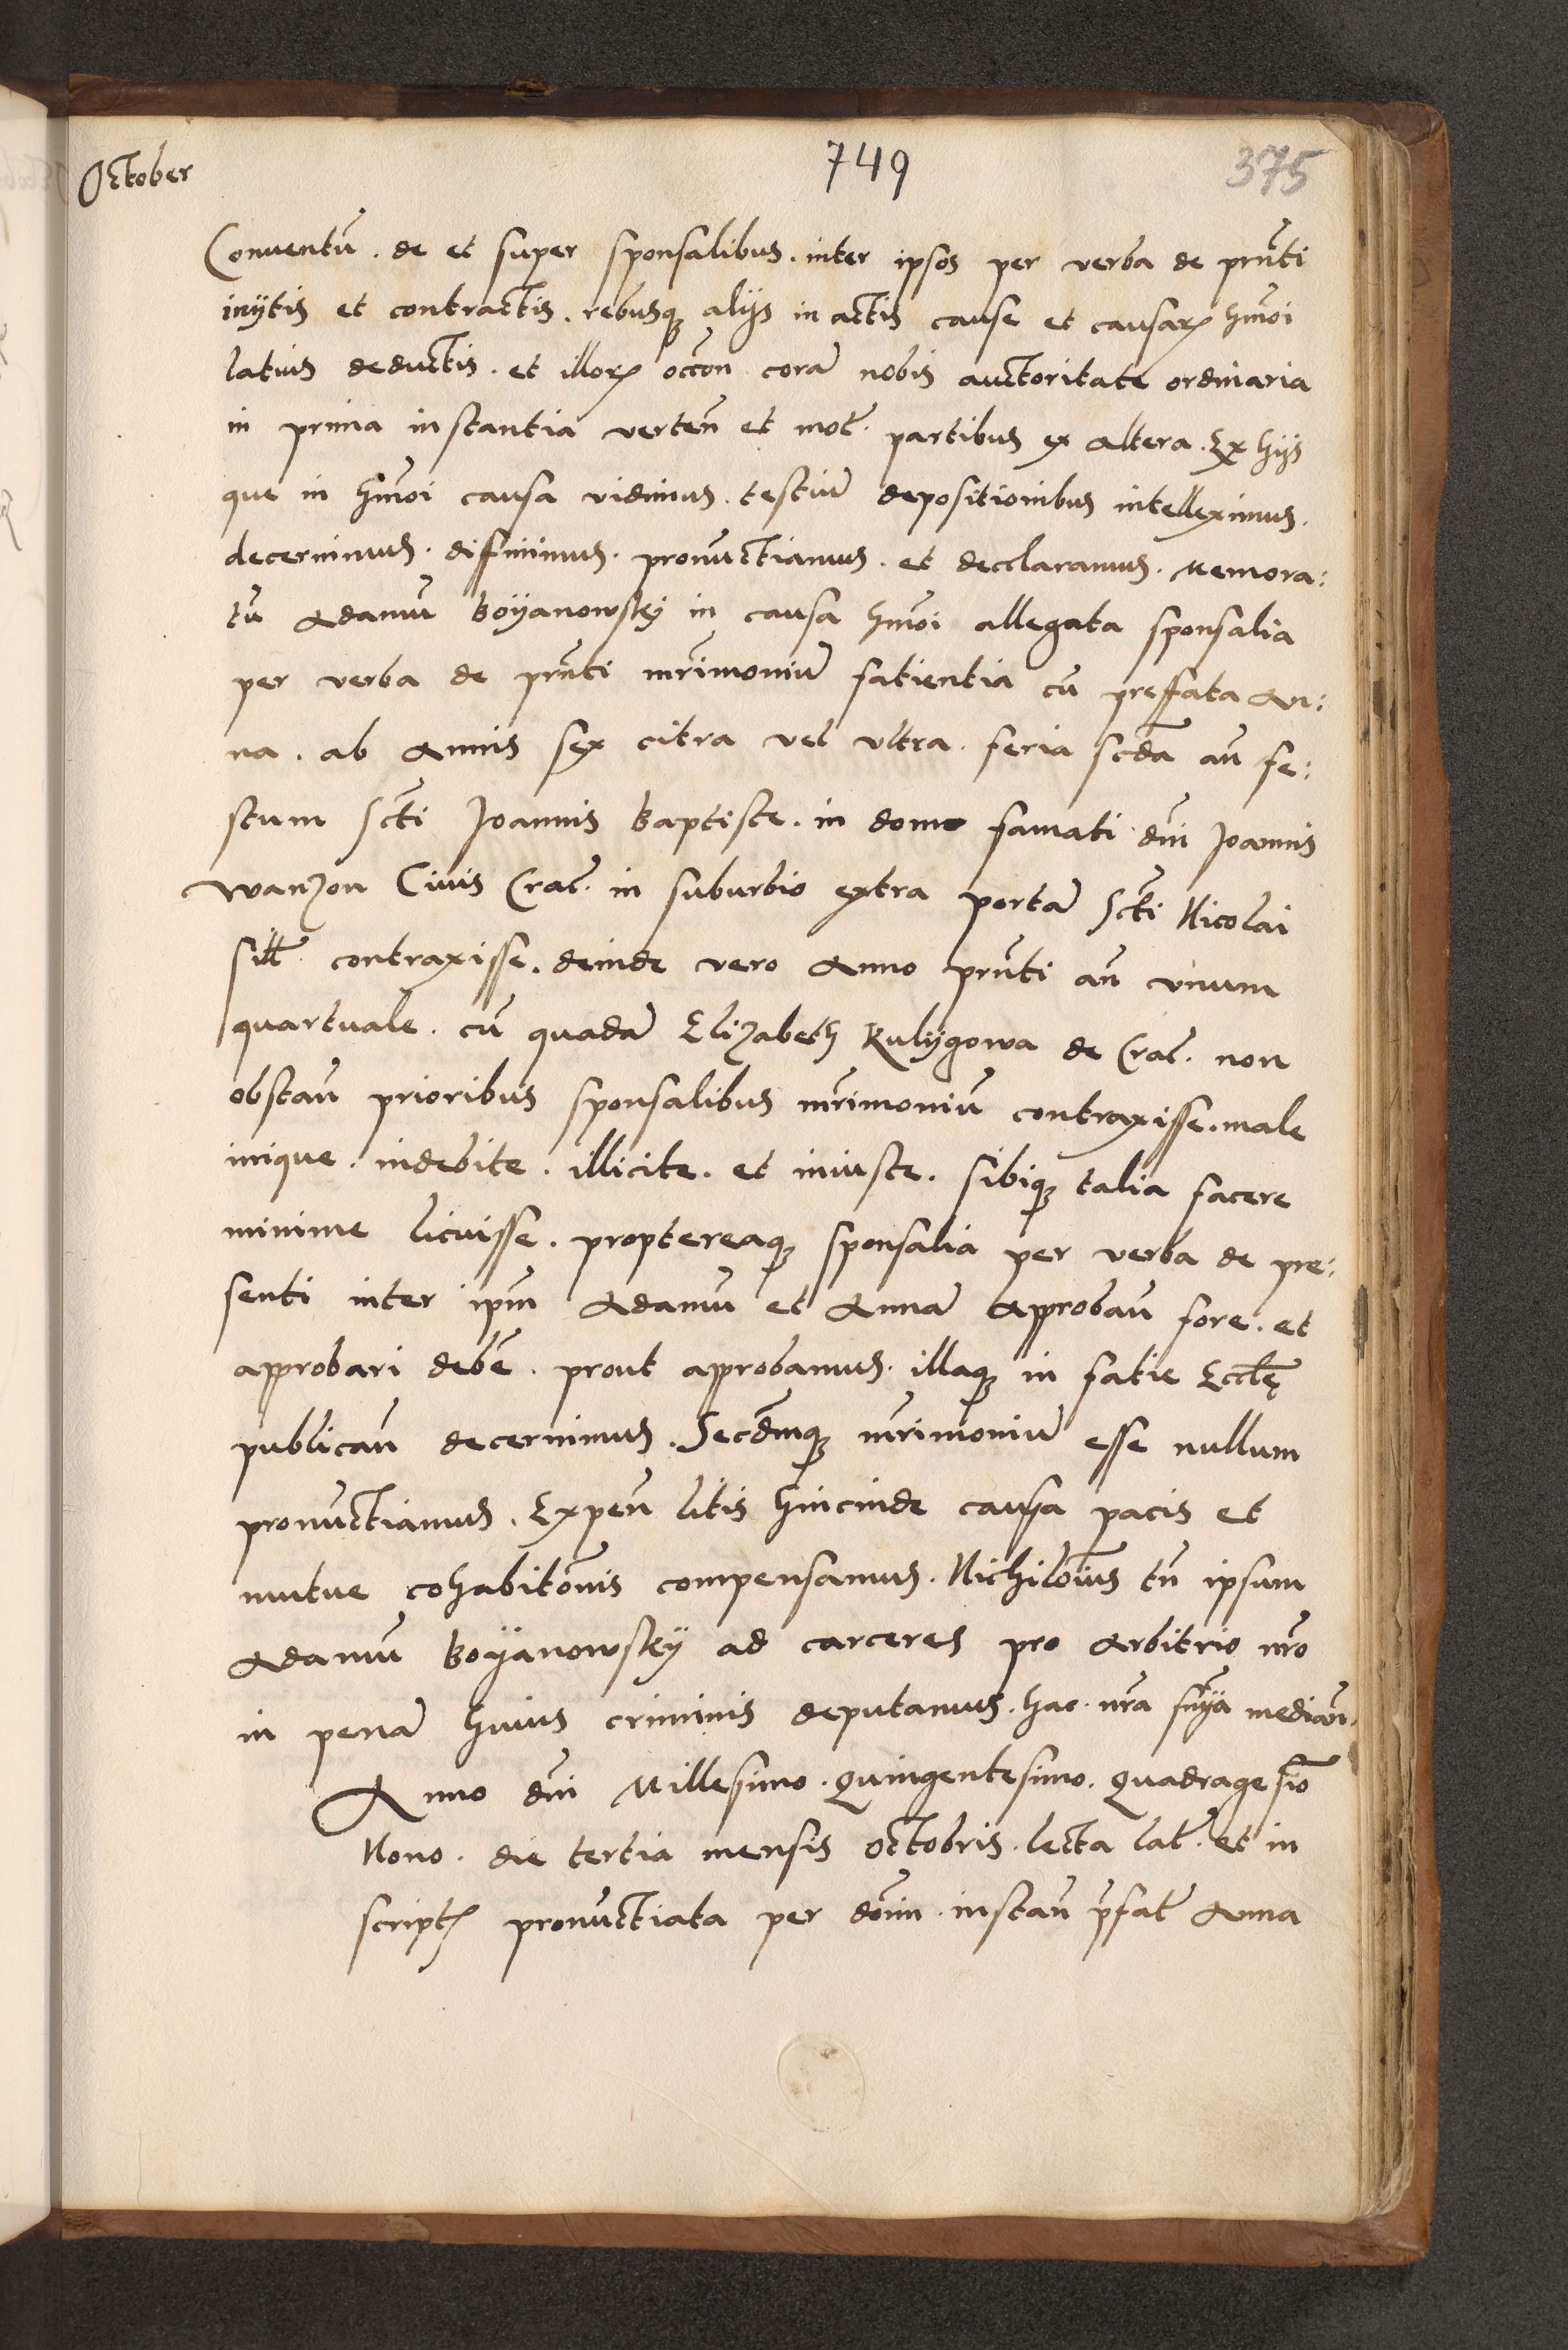 October
749
375
Conuentũ . de et super sponsalibus . inter ipsos per verba de prñti
inytis et contractis . rebusq; alijs in actis cause et causaꝝ hm̃oi
latius deductis . et illoꝝ occõn corã nobis auctoritate ordinaria
in prima instantia verteñ et mot̃ . partibus ex altera . Ex hijs
que in hm̃oi causa vidimus . testiũ depositionibus intelleximus .
decernimus . diffinimus . pronũctiamus . et decclaramus . Memora:
tũ Adamũ Boÿanowskÿ in causa hm̃oi allegata sponsalia
per verba de prñti mr̃imoniũ fatientia cũ preffata An:
na . ab Annis sex citra vel vltra . feria scďa añ fe:
stum Scti Joannis Baptiste . in domo famati dñi Joannis
Wanzon Ciuis Crac̃ . in suburbio extra portã Scti Nicolai
sitĩ contraxisse . deinde vero Anno prñti añ vnum
quartuale . cũ quadã Elizabeth Kulijgowa de Crac̃ . non
obstañ prioribus sponsalibus mr̃imoniũ contraxisse . male
inique . indebite . illicite . et iniuste . sibiq; talia facere
minime licuisse . proptereaq; sponsalia per verba de pre:
senti inter ipm̃ Adamũ et Annã approbañ fore . et
approbari debẽ . prout approbamus . illaq; in fatie Eccl̃ę
publicañ decernimus . Secďmq; mr̃imoniũ esse nullum
pronũctiamus . Expeñ litis hincinde causa pacis et
mutue cohabitõnis compensamus . Nichilom̃ius tñ ipsum
Adamũ Boÿanowskÿ ad carceres pro Arbitrio nr̃o
in penã huius criminis deputamus . hac . nr̃a sñÿa mediañ .
Anno dñi Millesimo . Quingentesimo . Quadragesĩo
Nono . die tertia mensis Octobris . lecta lat̃ . et in
scriptꝭ pronũctiata per dõm . instañ p̃fat̃ Anna